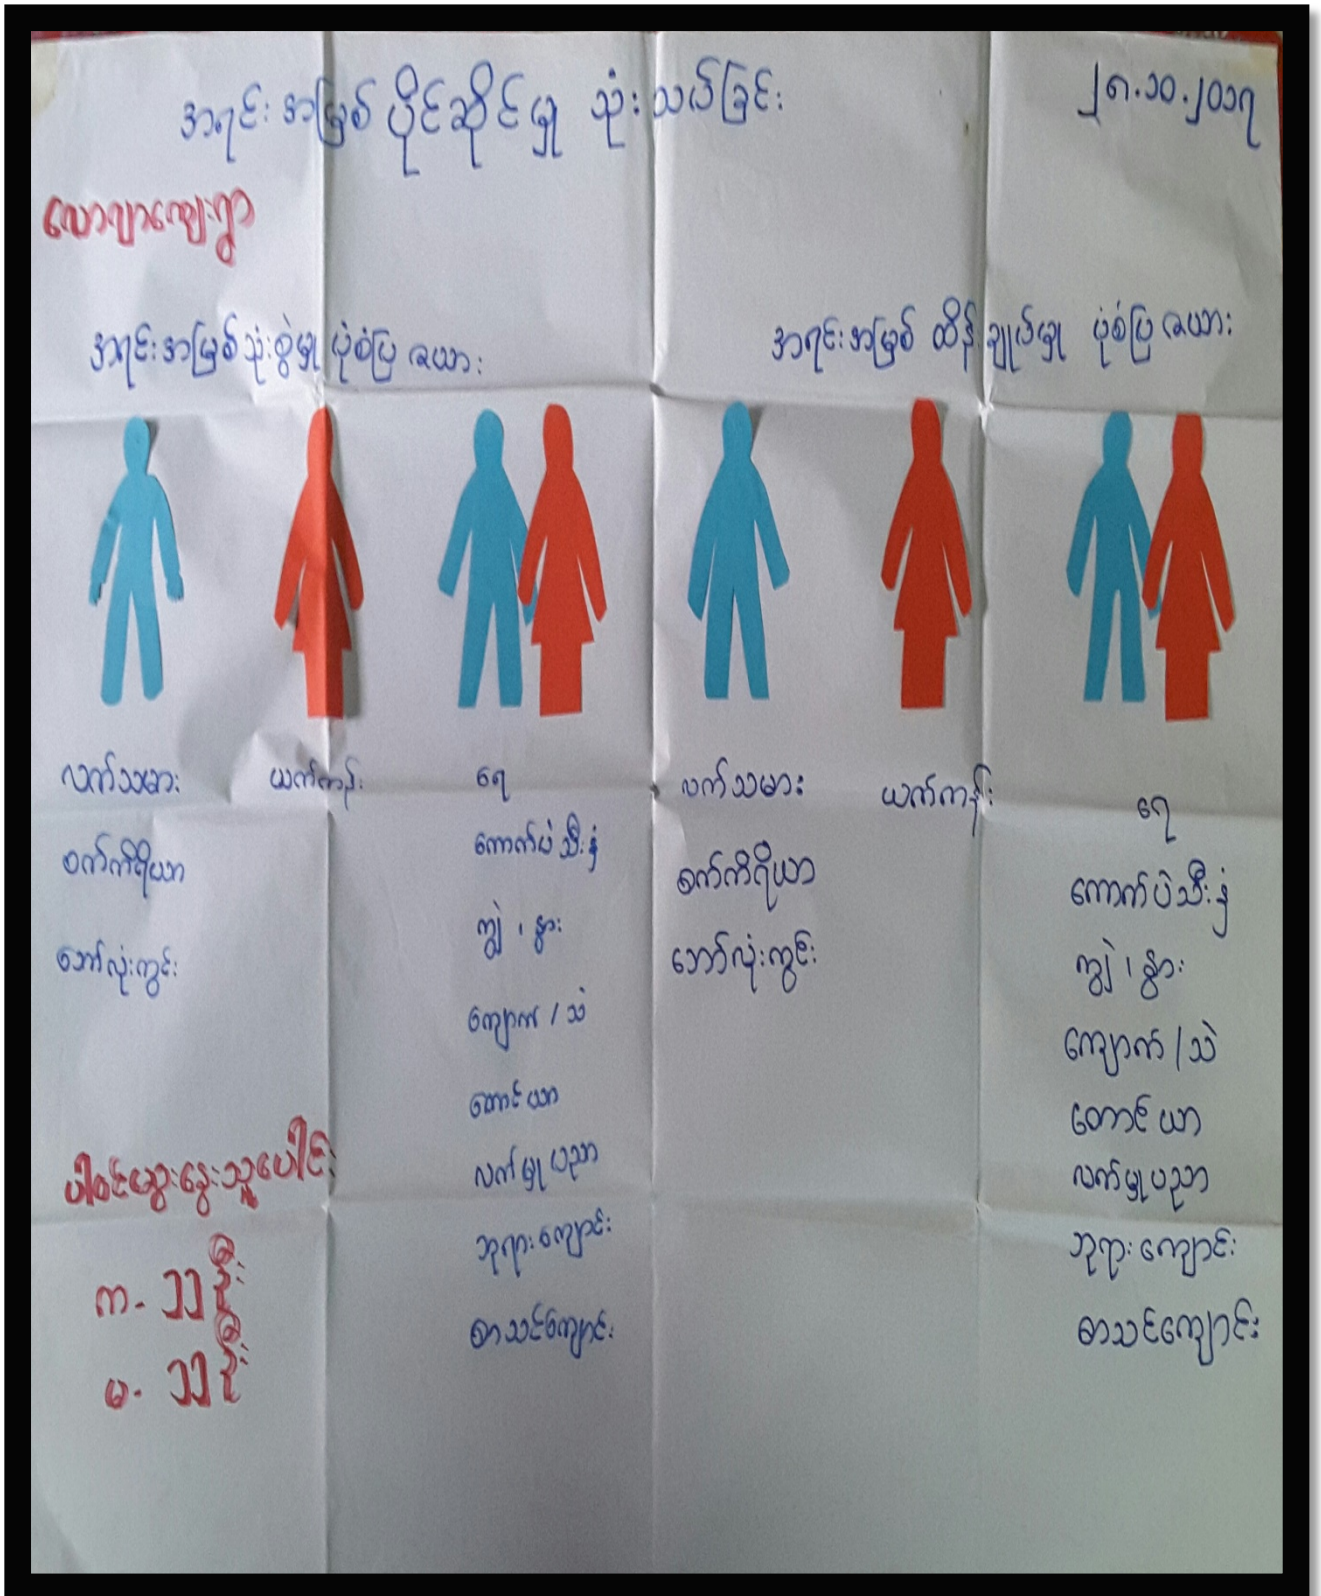 အရင်းအမြစ် ပိုင်ဆိုင်မှု သုံးသပ်ခြင်း
၂၈.၁၀.၂၀၁၇
လောဂျာကျေးရွာ
အရင်းအမြစ်သုံးစွဲမှု ပုံစံပြ ဇယား
အရင်းအမြစ် ထိန်းချုပ်မှု ပုံစံပြ ဇယား
လက်သမား ယက်ကန်း ရေ
စက်ကိရိယာ ကောက်ပဲသီးနှံ
ဘော်လုံးကွင်း ကျွဲ ၊ နွား
ကျောက် / သဲ
တောင်ယာ
လက်မှုပညာ
ဘုရားကျောင်း
စာသင်ကျောင်း
လက်သမား ယက်ကန်း ရေ
စက်ကိရိယာ ကောက်ပဲသီးနှံ
ဘော်လုံးကွင်း ကျွဲ ၊ နွား
ကျောက် / သဲ
တောင်ယာ
လက်မှုပညာ
ဘုရားကျောင်း
စာသင်ကျောင်း
ပါဝင်ဆွေးနွေးသူပေါင်း
က - ၁၁ ဦး
မ - ၁၁ ဦး